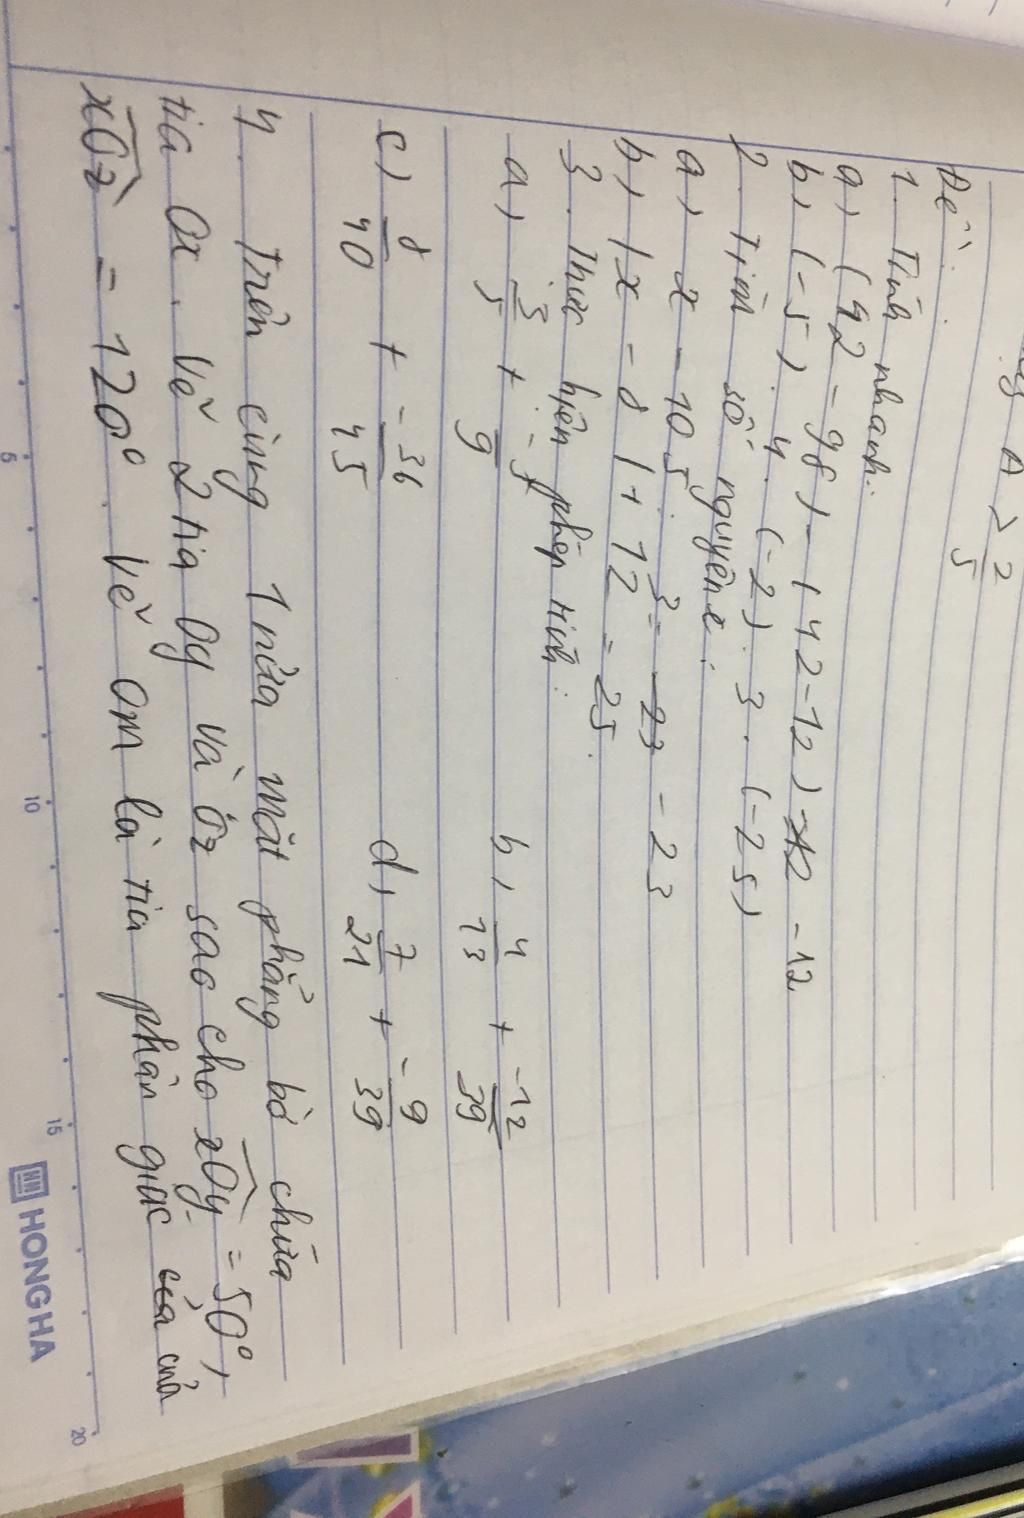 A > 2/5
Đề:
1. Tính nhanh:
a, (42 - 98) - (42 - 12) - 12
b, (-5). 4. (-2). 3. (-25)
2. Tìm số nguyên x:
a, x - 105 : 3 = - 23
b, |x - 8| + 12 = 25.
3. Thực hiện phép tính:
a, 3/5 + -5/9 b, 4/13 + -12/39
c, 8/40 + -36/45 d, 7/21 + -9/39
4. Trên cùng 1 nửa mặt phẳng bờ chứa
tia Ox. Vẽ 2 tia Oy và Oz sao cho xOy = 50°,
xOz = 120°. Vẽ Om là tia phân giác của
5 10 15 20
HONG HA